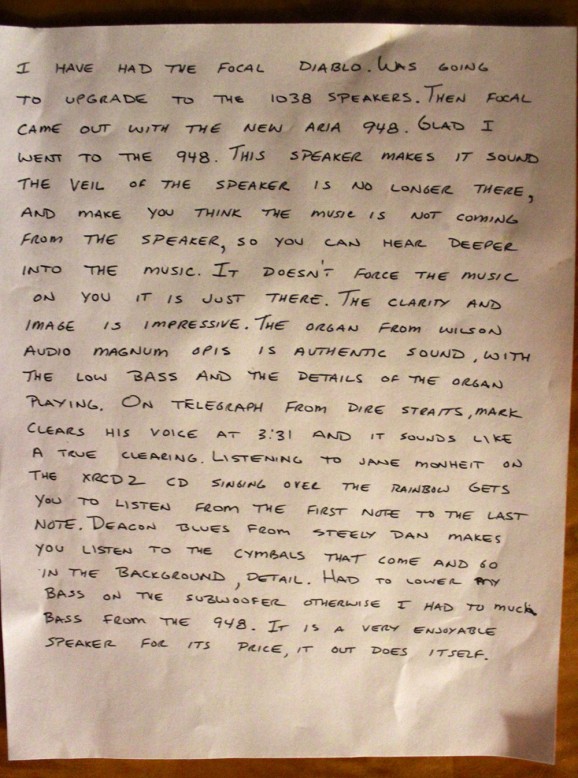 I HAVE HAD THE FOCAL DIABLO. WAS GOING
TO UPGRADE TO THE 1038 SPEAKERS. THEN FOCAL
CAME OUT WITH THE NEW ARIA 948. GLAD I
WENT TO THE 948. THIS SPEAKER MAKES IT SOUND
THE VEIL OF THE SPEAKER IS NO LONGER THERE,
AND MAKE YOU THINK THE MUSIC IS NOT COMING
FROM THE SPEAKER, SO YOU CAN HEAR DEEPER
INTO THE MUSIC. IT DOESN'T FORCE THE MUSIC
ON YOU IT IS JUST THERE. THE CLARITY AND
IMAGE IS IMPRESSIVE. THE ORGAN FROM WILSON
AUDIO MAGNUM OPIS IS AUTHENTIC SOUND, WITH
THE LOW BASS AND THE DETAILS OF THE ORGAN
PLAYING. ON TELEGRAPH FROM DIRE STRAITS, MARK
CLEARS HIS VOICE AT 3:31 AND IT SOUNDS LIKE
A TRUE CLEARING. LISTENING TO JANE MONHEIT ON
THE XRCD2 CD SINGING OVER THE RAINBOW GETS
YOU TO LISTEN FROM THE FIRST NOTE TO THE LAST
NOTE. DEACON BLUES FROM STEELY DAN MAKES
YOU LISTEN TO THE CYMBALS THAT COME AND GO
IN THE BACKGROUND, DETAIL. HAD TO LOWER MY
BASS ON THE SUBWOOFER OTHERWISE I HAD TO MUCH
BASS FROM THE 948. IT IS A VERY ENJOYABLE
SPEAKER FOR ITS PRICE, IT OUT DOES ITSELF.